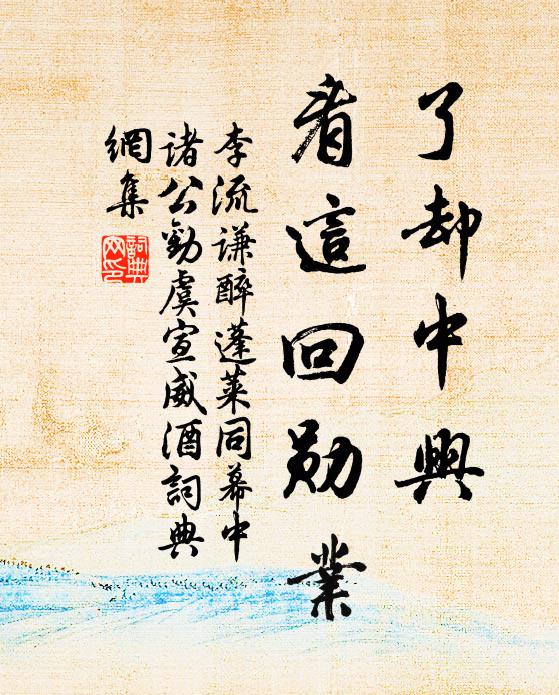 了却中興
看這回勛業
李流谦醉蓬莱同幕中
诸公勸虞宣威酒詞典
網集
詞典
网印